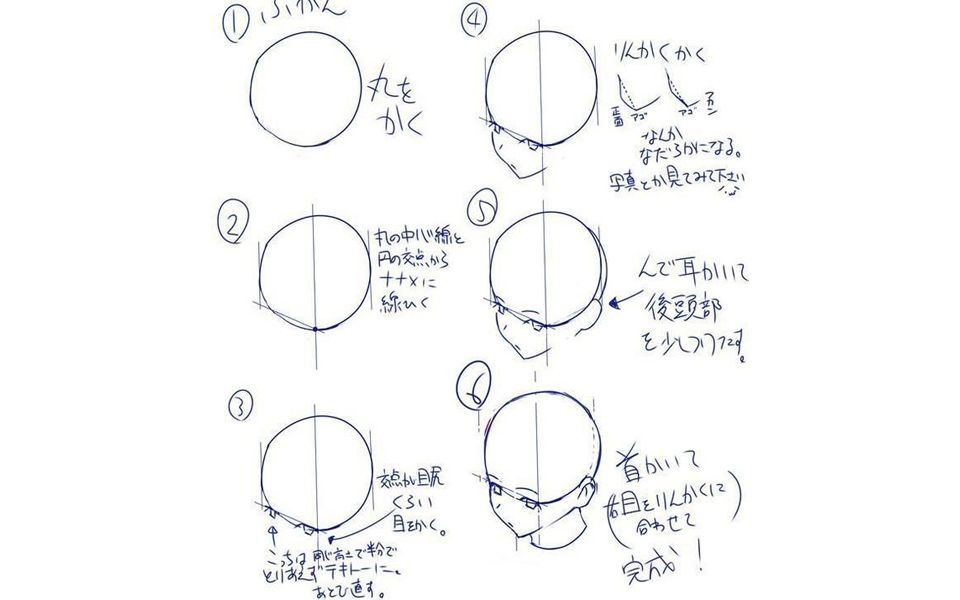 ① ふかん
丸を
かく
②
丸の中心線と
円の交点から
ナナメに
線ひく
③
交点が目尻
くらい
目をかく。
こっちは同じ高さで半分で
とりあえずテキトーに。
あとで直す。
④
りんかくかく
正面 アゴ アゴ フカン
なんか
なだらかになる。
写真とか見てみて下さい
⑤
んで耳かいて
後頭部
を少しつけたす。
⑥
首かいて
右目をりんかくに
合わせて
完成!